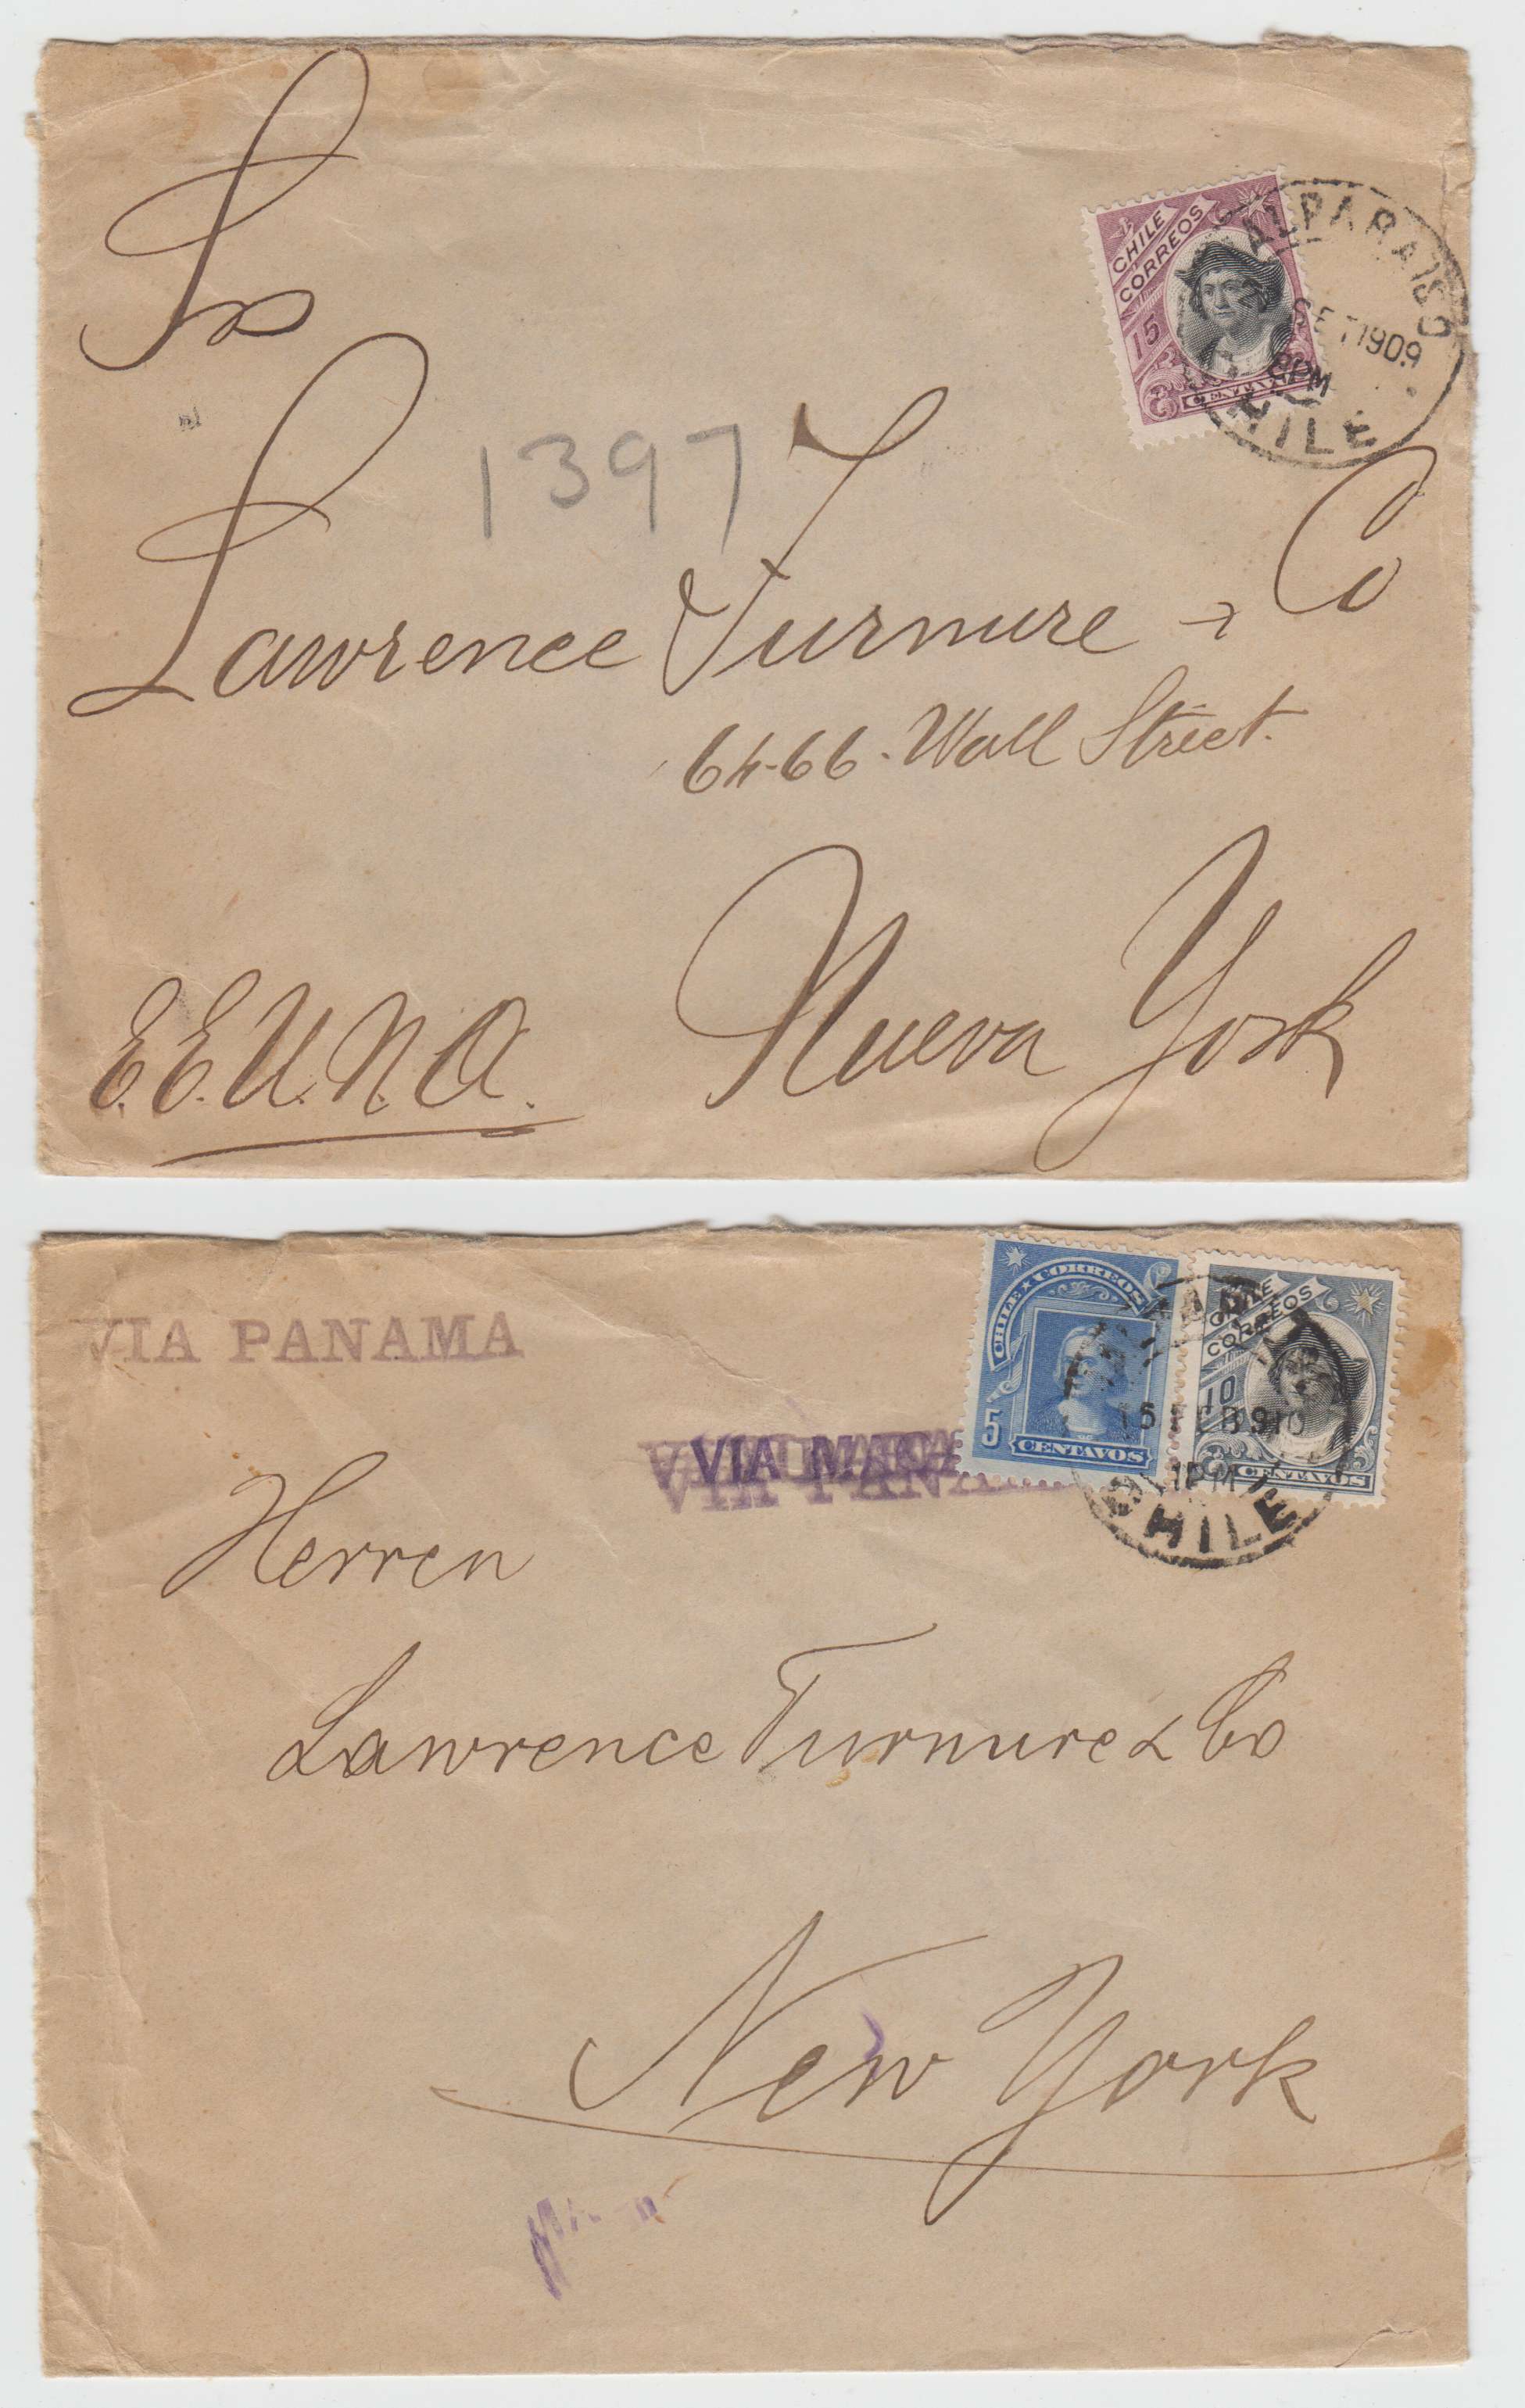 CHILE
CORREOS
15
CENTAVOS
VALPARAISO
SET 1909
8PM
CHILE
1397
Lawrence Turnure & Co
64-66. Wall Street.
Nueva York
E.E.U.N.A.
VIA PANAMA
CHILE ★ CORREOS
5
CENTAVOS
CHILE
CORREOS
10
CENTAVOS
1PM
CHILE
VIA
VIA PANA
Herren
Lawrence Turnure & Co
New York